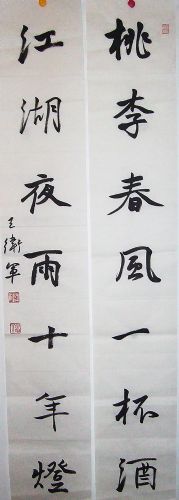 桃李春風一杯酒
江湖夜雨十年燈
王衛軍